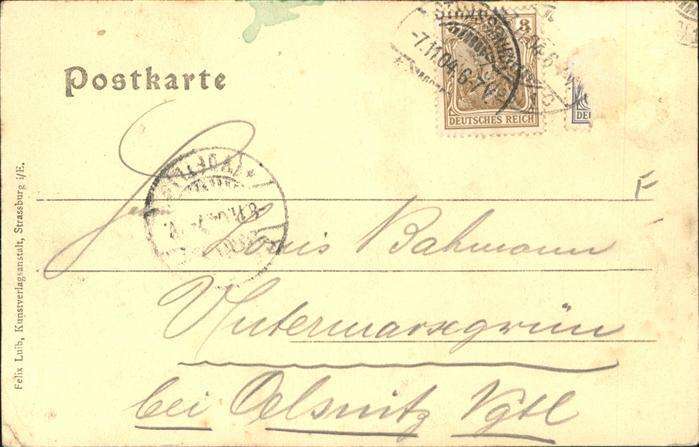 Postkarte
STRASSBURG
-7.11.04.6-7V.
3
DEUTSCHES REICH
Herrn
Louis Bahmann
Untermarxgrün
bei Oelsnitz Vgtl
F
Felix Luib, Kunstverlagsanstalt, Strassburg i/E.